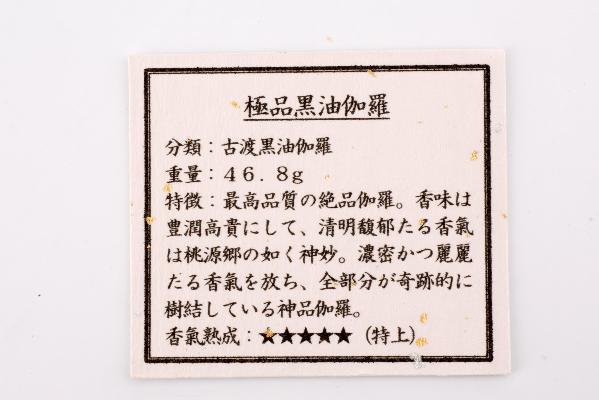 極品黒油伽羅
分類：古渡黒油伽羅
重量：４６．８g
特徴：最高品質の絶品伽羅。香味は
豊潤高貴にして、清明馥郁たる香氣
は桃源郷の如く神妙。濃密かつ麗麗
たる香氣を放ち、全部分が奇跡的に
樹結している神品伽羅。
香氣熟成：★★★★★（特上）